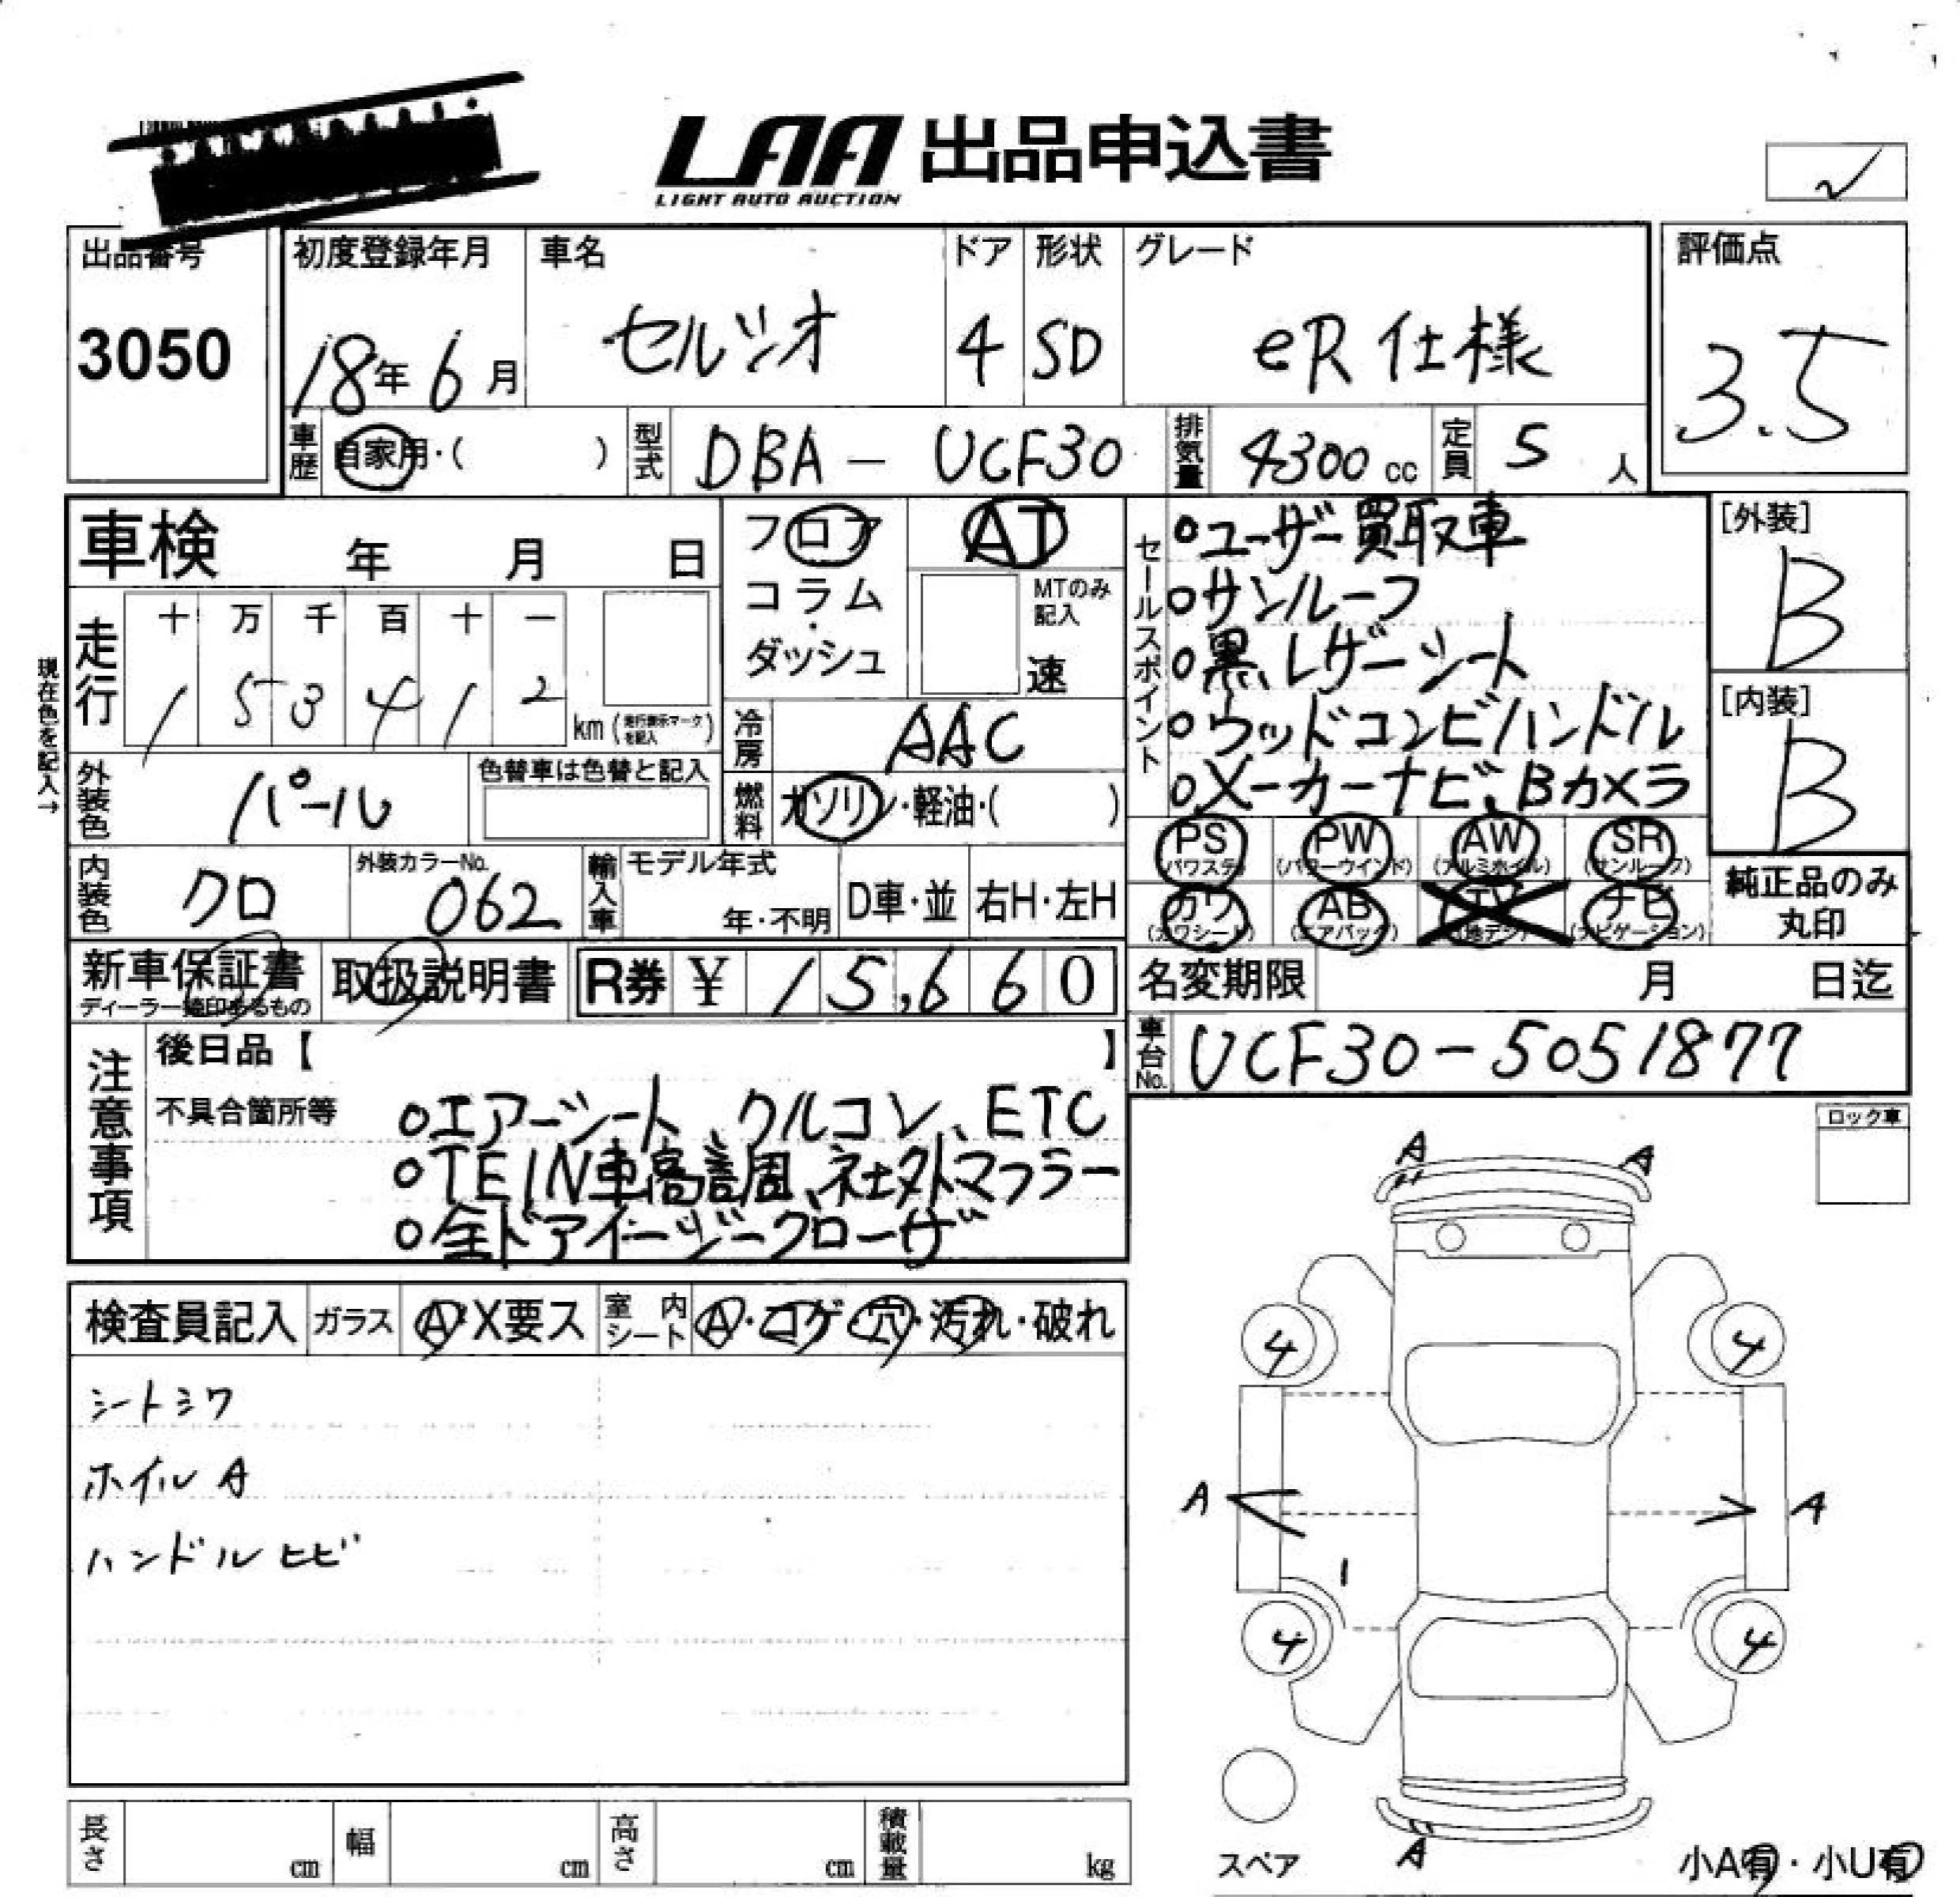 LAA 出品申込書
LIGHT AUTO AUCTION
出品番号
3050
初度登録年月
18年6月
車名
セルシオ
ドア
4
形状
SD
グレード
eR仕様
評価点
3.5
車歴
自家用・( )
型式
DBA-UCF30
排気量
4300cc
定員
5人
車検 年 月 日
フロア
コラム
・
ダッシュ
AT
MTのみ
記入
速
セールスポイント
○ユーザー買取車
○サンルーフ
○黒レザーシート
○ウッドコンビハンドル
○メーカーナビ、Bカメラ
[外装]
B
[内装]
B
走行
十 万 千 百 十 一
1 5 3 4 1 2
km(走行表示マークを記入)
現在色を記入→
冷房
AAC
外装色
パール
色替車は色替と記入
燃料
ガソリン・軽油・( )
PS (パワステ)
PW (パワーウインド)
AW (アルミホイル)
SR (サンルーフ)
カワ (カワシート)
AB (エアバッグ)
TV
ナビ (ナビゲーション)
純正品のみ
丸印
内装色
クロ
外装カラーNo.
062
輸入車
モデル年式
年・不明
D車・並
右H・左H
新車保証書
取扱説明書
R券 ¥ 15,660
名変期限 月 日迄
車台No.
UCF30-5051877
注意事項
後日品【 】
不具合箇所等
○エアーシート、クルコン、ETC
○TEIN車高調、社外マフラー
○全ドアイージークローザ
ロック車
検査員記入
ガラス
A・X要ス
室内シート
A・コゲ・穴・汚れ・破れ
シートシワ
ホイルA
ハンドルヒビ
A
A
4
4
A
A
1
4
4
スペア
A
小A有・小U有
長さ cm
幅 cm
高さ cm
積載量 kg